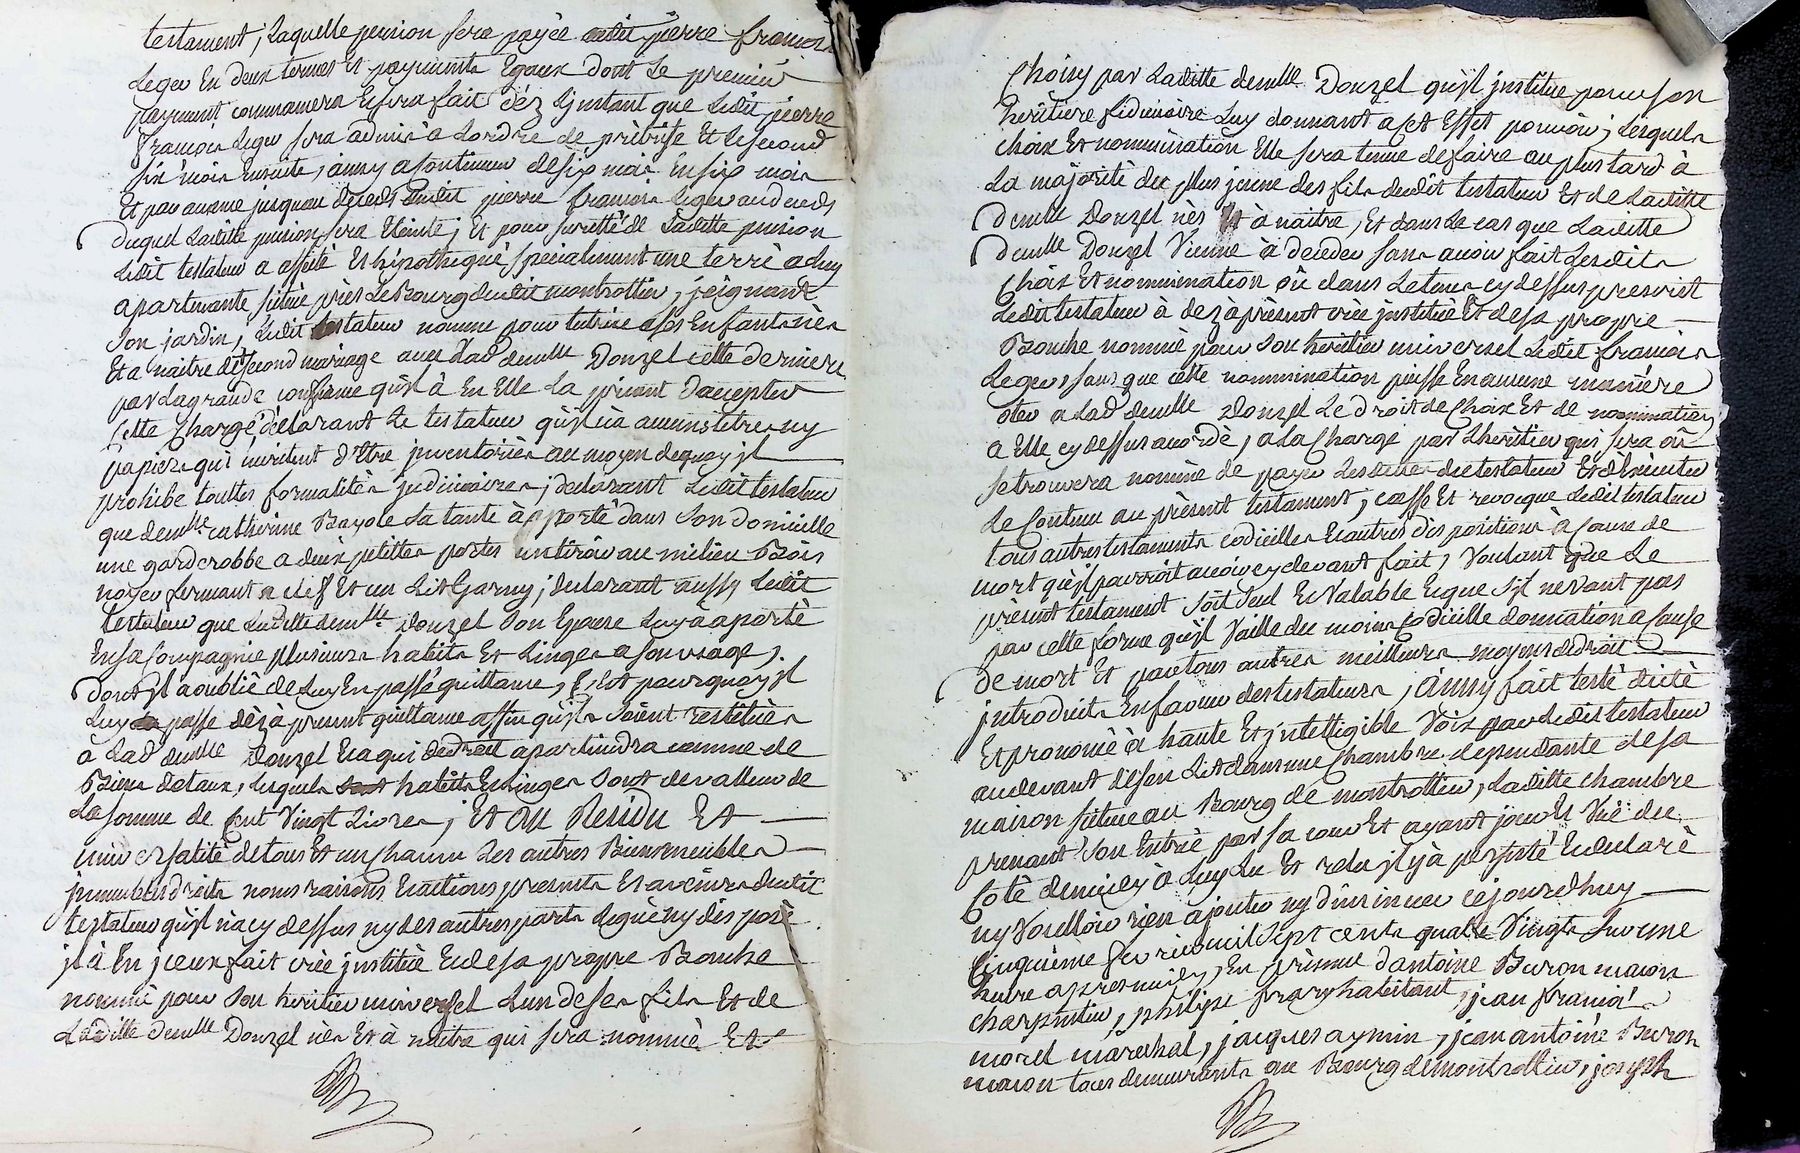 testament, laquelle pension sera payée audit pierre françois
Leger En deux termes Et payements Egaux dont Le premier
payement commencera Et sera fait déz Linstant que Ledit pierre
françois Leger sera admis à Lordre de prètrise Et Le second
six mois Ensuite, ainsy a continuer de six mois En six mois
Et par avance jusquau deceds dudit pierre françois Leger au deceds
duquel Laditte pension sera Eteinte; Et pour suretté de Laditte pension
Ledit testateur a affecté Et hipothèqué spècialement une terre à Luy
apartenante sittuée près Le Bourg dudit montrottier, joignant
Son jardin, Ledit testateur nomme pour tutrice a ses Enfants nès
Et a naitre de second mariage avec Lad demelle Donzel cette derniere
par La grande confiance qu'jl à En Elle La priant D'accepter
Cette Charge déclarant Le testateur qu'jl n'a aucuns titres ny
papiers qui meritent d'Etre jnventoriés au moyen de quoy jl
prohibe touttes formalitès judiciaires; declarant Ledit testateur
que demelle catherine Bayole Sa tante à aporté dans Son domicille
une garderobbe a deux petittes portes un tiroir au milieu Bois
noyer fermant a clef Et un Lit Garny; declarant aussy Ledit
testateur que Laditte demelle Donzel Son Epouse Luy à aportè
En sa Compagnie plusieurs habits Et Linges a son usage,
dont jl a oublié de Luy En passé quittance, C'est pourquoy jl
Luy passe dèz à present quittance affin qu'jls Soient restituès
à Lad demelle Donzel Ou a qui de droit apartiendra comme de
Biens dotaux, Lesquels habits Et Linges Sont de valleur de
La somme de Cent Vingt Livres; Et au Residu Et
universalité de tous Et un chacun Ses autres Biens meubles
jmmeubles droits noms raisons Et actions presents Et avenirs dudit
testateur qu'jl n'a cy dessus ny des autres parts legué ny disposé
jl à En jceux fait crée jnstitué Et de sa propre Bouche
nommé pour Son heritier universel L'un de ses fils Et de
Laditte demelle Donzel nès Et à naitre qui sera nommé Et
Choisy par Laditte demelle Donzel qu'jl jnstitue pour son
heritiere fiduciaire Luy donnant à cet Effet pouvoir; Lesquels
choix Et nommination Elle sera tenue de faire au plus tard à
La majorité du plus jeune des fils dudit testateur Et de Laditte
demelle Donzel nès Et à naitre, Et dans Le cas que Laditte
demelle Donzel Vienne à deceder sans avoir fait Lesdits
Choix Et nommination où dans Le tems cy dessus prescrit
Ledit testateur à dez à présent crée jnstitué Et de sa propre
Bouche nommé pour Son heritier universel Ledit françois
Leger, sans que cette nommination puisse En aucune maniére
oter a Lad demelle Donzel Le droit de Choix Et de nommination
a Elle cy dessus accordé, a La Charge par Lheritier qui sera où
se trouvera nommé de payer Les dettes du testateur Et d'Executer
Le Contenu au présent testament, casse Et revocque Ledit testateur
tous autres testaments codicilles Et autres dispositions à Cause de
mort qu'jl pourroit avoir cy devant fait, Voulant que Le
présent testament Soit Seul Et Valable Et que S'jl ne Vaut pas
par cette forme qu'jl Vaille du moins Codicille donnation à Cause
de mort Et par tous autres meilleurs moyens de droit
jntroduits En faveur des testateurs, ainsy fait testé dicté
Et prononcé à haute Et jntelligible Voix par Ledit testateur
au devant de Son Lit dans une Chambre dependante de sa
maison sittuée au Bourg de montrottier, Laditte chambre
prenant Son Entrée par Sa cour Et ayant jour Et Vüe du
Coté de midy à Luy Lu Et relu jl y à persisté Et declaré
ny Voulloir rien ajouter ny diminuer cejourdhuy
Cinquième fevrier mil Sept cents quatre Vingts Sur une
heure apres midy, En présence d'antoine Buron maçon
charpentier, philipe frary habitant, jean françois
morel marechal, jacques aymin, jean antoine Buron
maçon tous demeurants au Bourg de montrottier, joseph